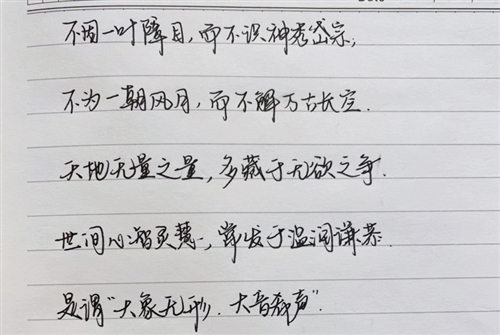 不因一叶障目，而不识神秀岱宗；
不为一朝风月，而不解万古长空.
天地无量之量，多藏于无欲之争.
世间心智灵慧，常发于温润谦恭.
是谓“大象无形.大音希声”.